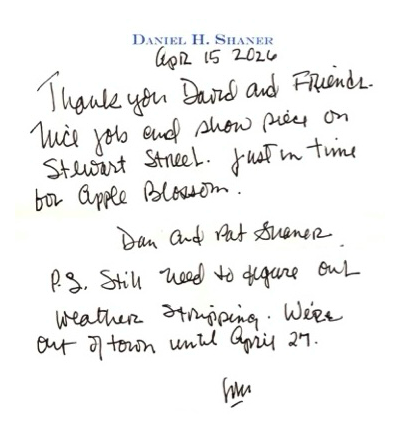 DANIEL H. SHANER
Apr 15 2026
Thank you David and Friends.
Nice job and show piece on
Stewart Street. Just in time
for Apple Blossom.
Dan and Pat Shaner
P.S. Still need to figure out
weather stripping. We're
out of town until April 27.